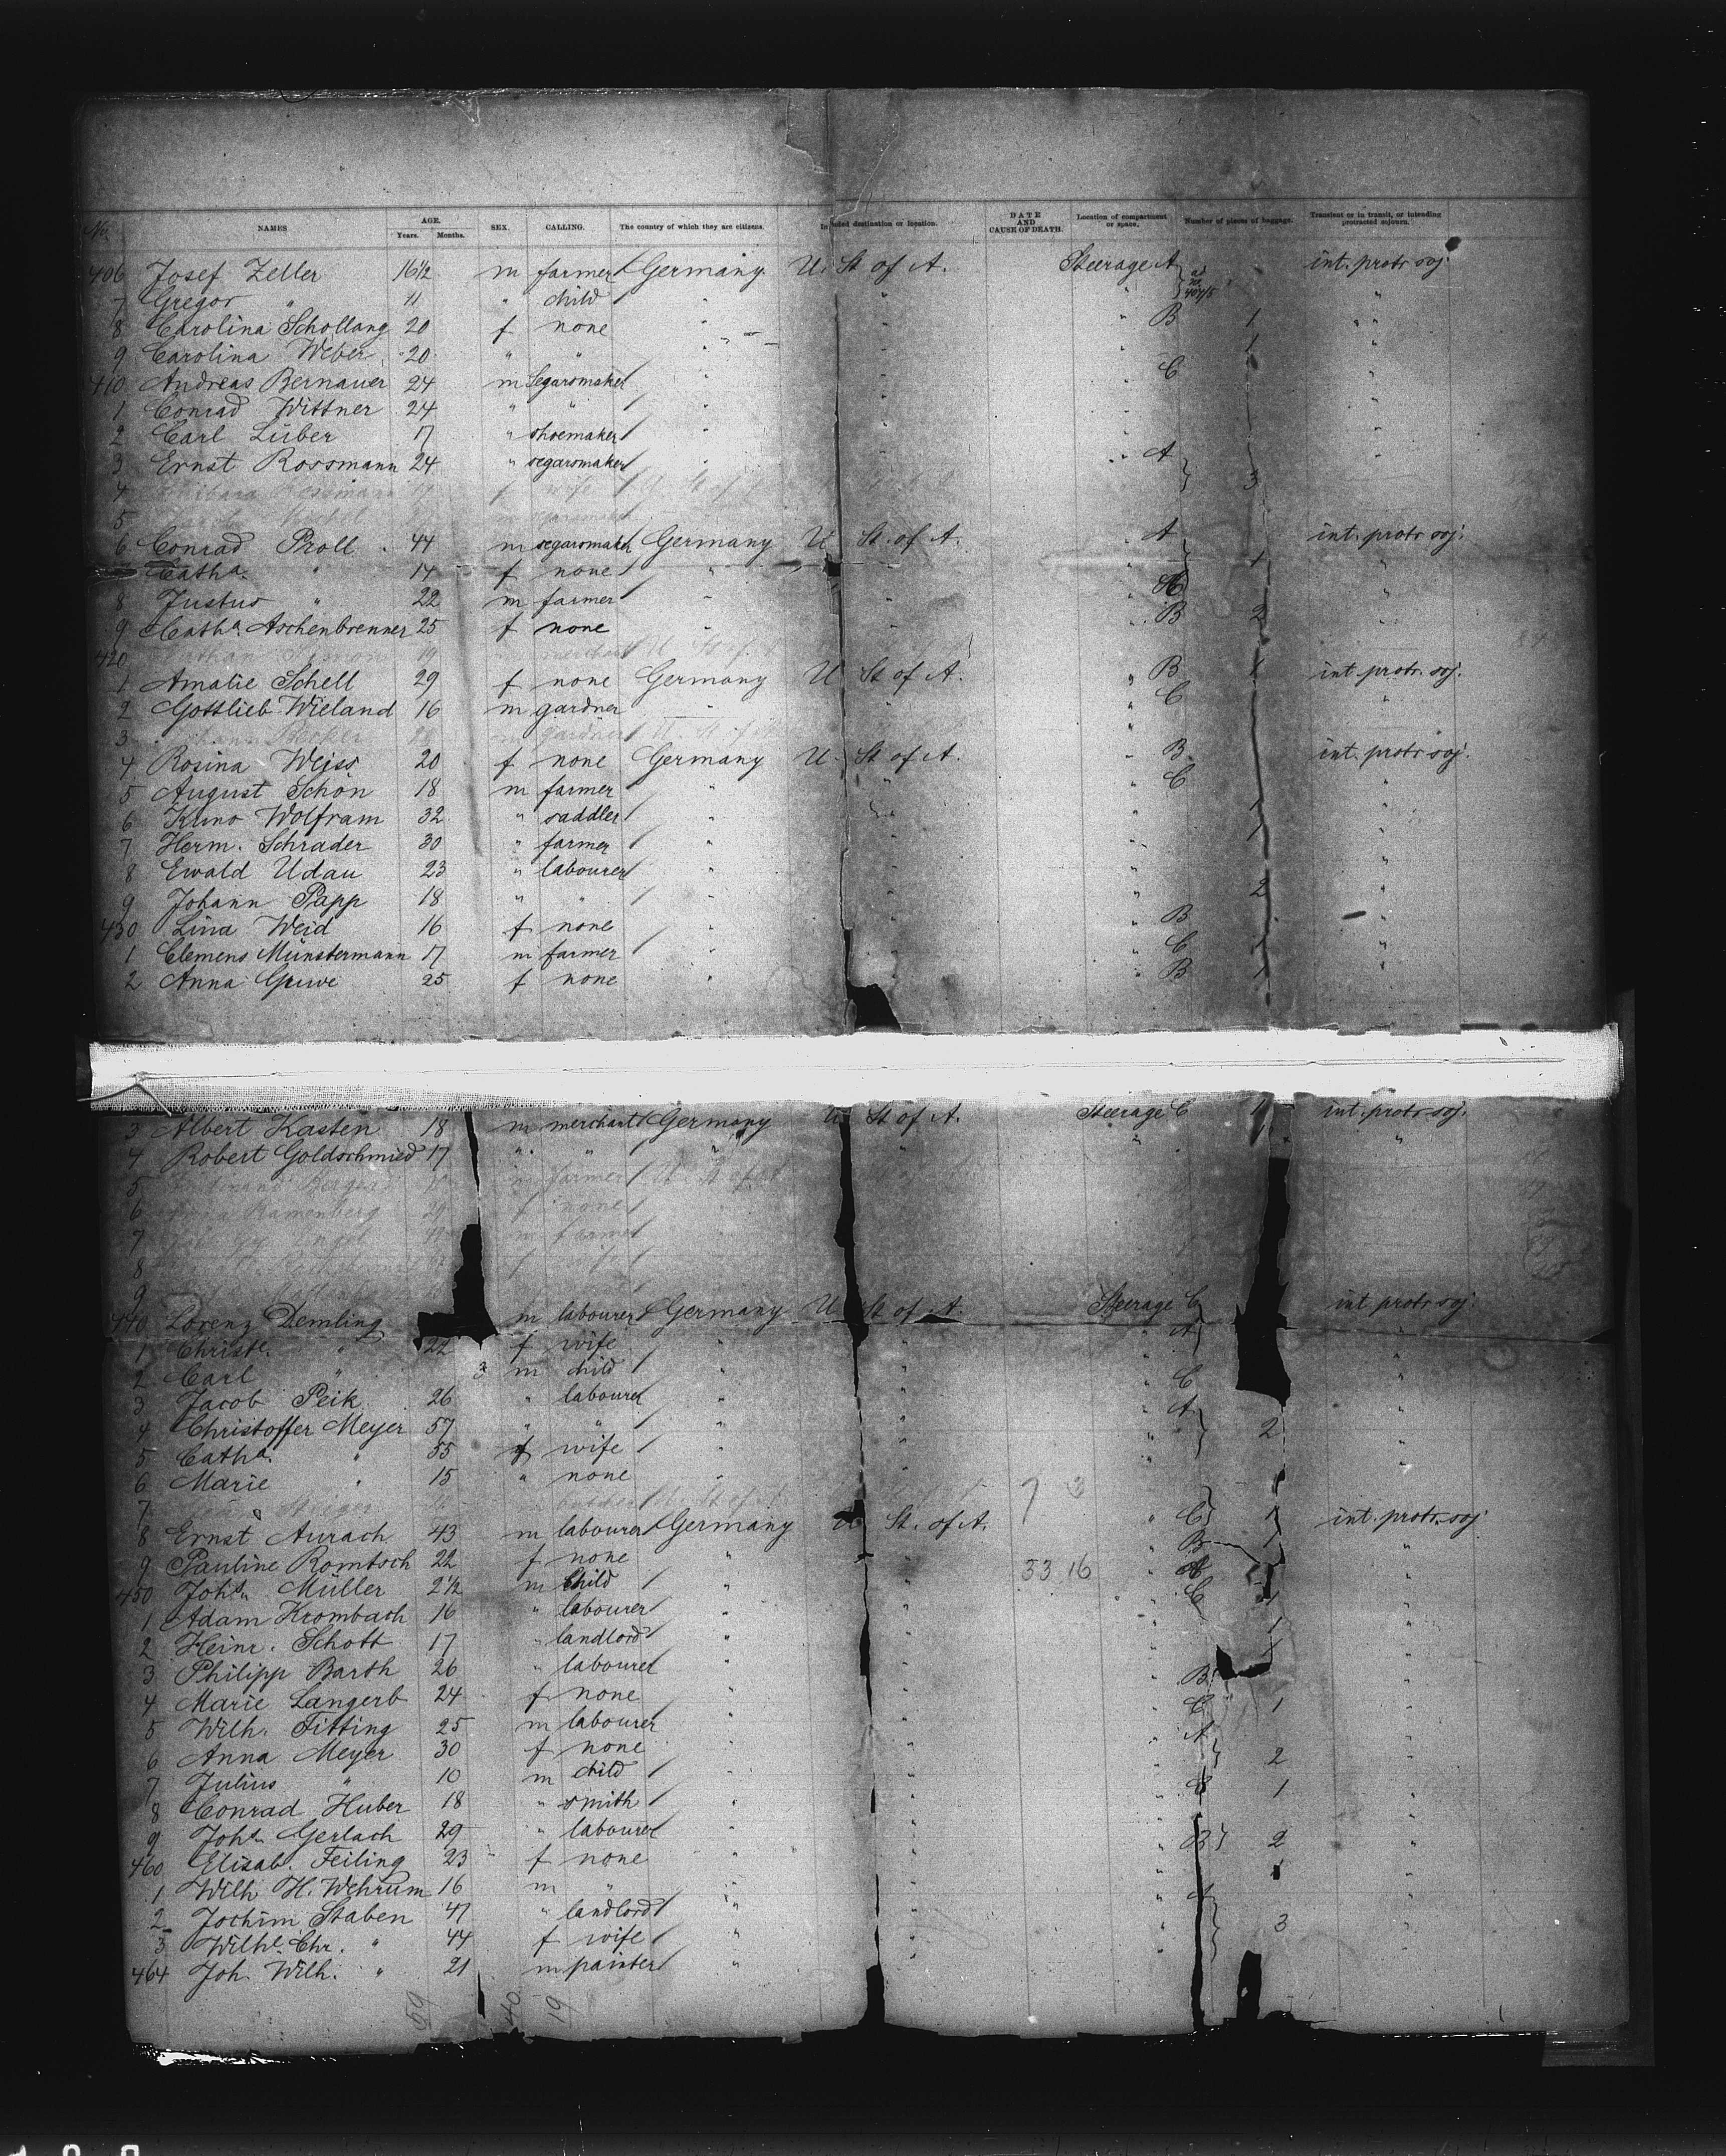 No. NAMES AGE. Years. Months. SEX. CALLING. The country of which they are citizens. Intended destination or location. DATE AND CAUSE OF DEATH. Location of compartment or space. Number of pieces of baggage. Transient or in transit, or intending protracted sojourn.
406 Josef Zeller 16½ m farmer Germany U. St of A. Steerage A int. protr soj.
7 Gregor " 11 " child " " " "
8 Carolina Schollang 20 f none " " " B 1 "
9 Carolina Weber 20 " " " " " 1 "
410 Andreas Bernauer 24 m Segarsmaker " " " C "
1 Conrad Wittner 24 " " " " " "
2 Carl Luber 17 " shoemaker " " " "
3 Ernst Rossmann 24 " segarsmaker " " " A 3 "
4 f wife
5 m
6 Conrad Proll 44 m segarsmaker Germany U. St. of A. " A 1 int. protr soj.
Catha. " 14 f none " " " "
8 Justus " 22 m farmer " " " "
9 Catha. Aschenbrenner 25 f none " " " B 2 "
420 19 merchant
1 Amalie Schell 29 f none Germany U St of A. " B 1 int. protr. soj.
2 Gottlieb Wieland 16 m gardner " " " C "
3 gardner
4 Rosina Weiss 20 f none Germany U. St of A. " B int. protr soj.
5 August Schön 18 m farmer " " " C "
6 Kuno Wolfram 32 " saddler " " " 1 "
7 Herm. Schrader 30 " farmer " " " 1 "
8 Ewald Udau 23 " labourer " " " "
9 Johann Papp 18 " " " " " 2 "
430 Lina Weid 16 f none " " " B "
1 Clemens Münstermann 17 m farmer " " " C 1 "
2 Anna Gruwe 25 f none " " " B 1
3 Albert Kasten 18 m merchant Germany U St of A. Steerage C 1 int. protr soj.
4 Robert Goldschmied 17 " " " " "
5 Berger m farmer
6 Ramenberg 29 f none
7 m farmer
8 f wife
9
440 Lorenz Demling m labourer Germany U St of A. Steerage C int protr soj.
1 Christe. " 22 f wife " " " A "
2 Carl " 3 m child " " " "
3 Jacob Peik 26 " labourer " " " C "
4 Christoffer Meyer 57 " " " " " A 2 "
5 Catha. " 55 f wife " " " "
6 Marie " 15 " none " " "
7
8 Ernst Aurach 43 m labourer Germany U St. of A. " C 1 int. protr. soj
9 Pauline Romtsch 22 f none " " " B 1 "
450 Johs. Müller 2½ m child " " 33 16 " "
1 Adam Krombach 16 " labourer " " " C 1 "
2 Heinr. Schott 17 " landlord " " " 1 "
3 Philipp Barth 26 " labourer " " " 1 "
4 Marie Langerb 24 f none " " " B "
5 Wilh. Fitting 25 m labourer " " " C 1 "
6 Anna Meyer 30 f none " " " A 2 "
7 Julius " 10 m child " " " "
8 Conrad Huber 18 " smith " " " C 1 "
9 Johs. Gerlach 29 " labourer " " " "
460 Elisab. Feiling 23 f none " " " B 2 "
1 Wilh H. Wehrum 16 m " " " " 1 "
2 Jochim Staben 47 " landlord " " " A "
3 Wilhe. Chr. " 44 f wife " " " 3 "
464 Joh. Wilh. " 21 m painter " " "
59 40 19